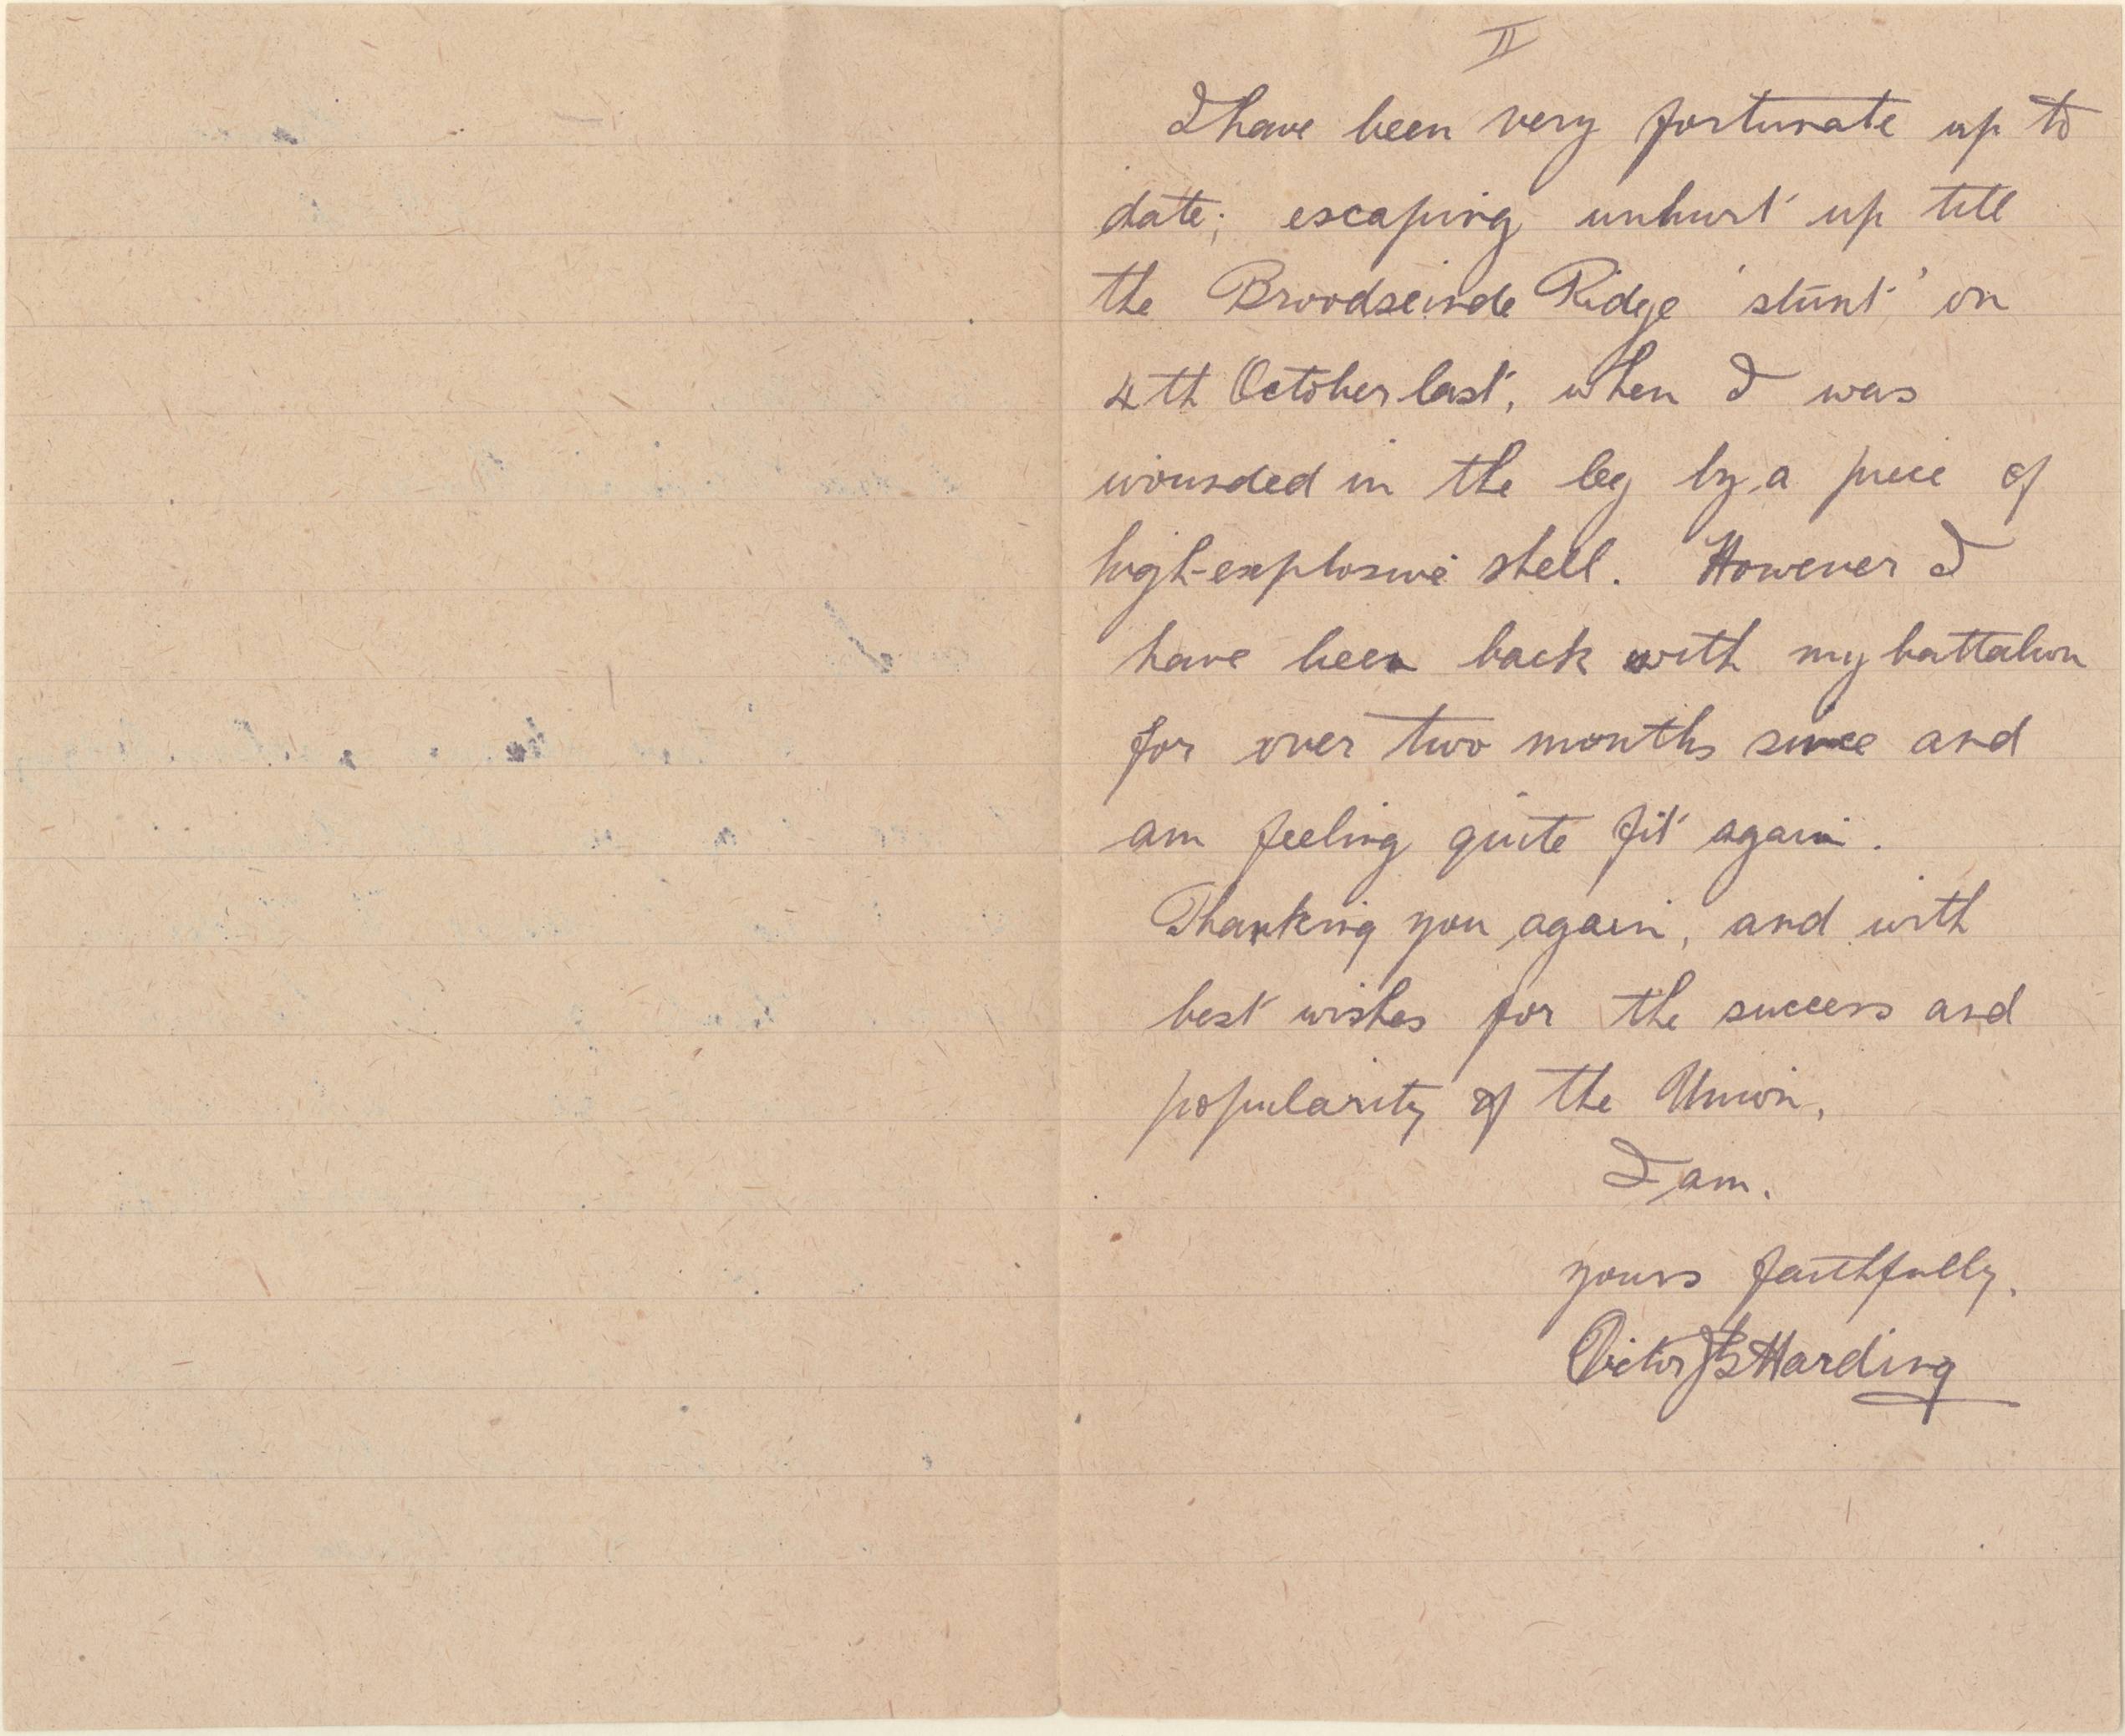 II
I have been very fortunate up to
date; escaping unhurt up till
the Broodseinde Ridge 'stunt' on
4th October last, when I was
wounded in the leg by a piece of
high-explosive shell. However I
have been back with my battalion
for over two months since and
am feeling quite fit again.
Thanking you again, and with
best wishes for the success and
popularity of the Union,
I am.
yours faithfully,
Victor Harding